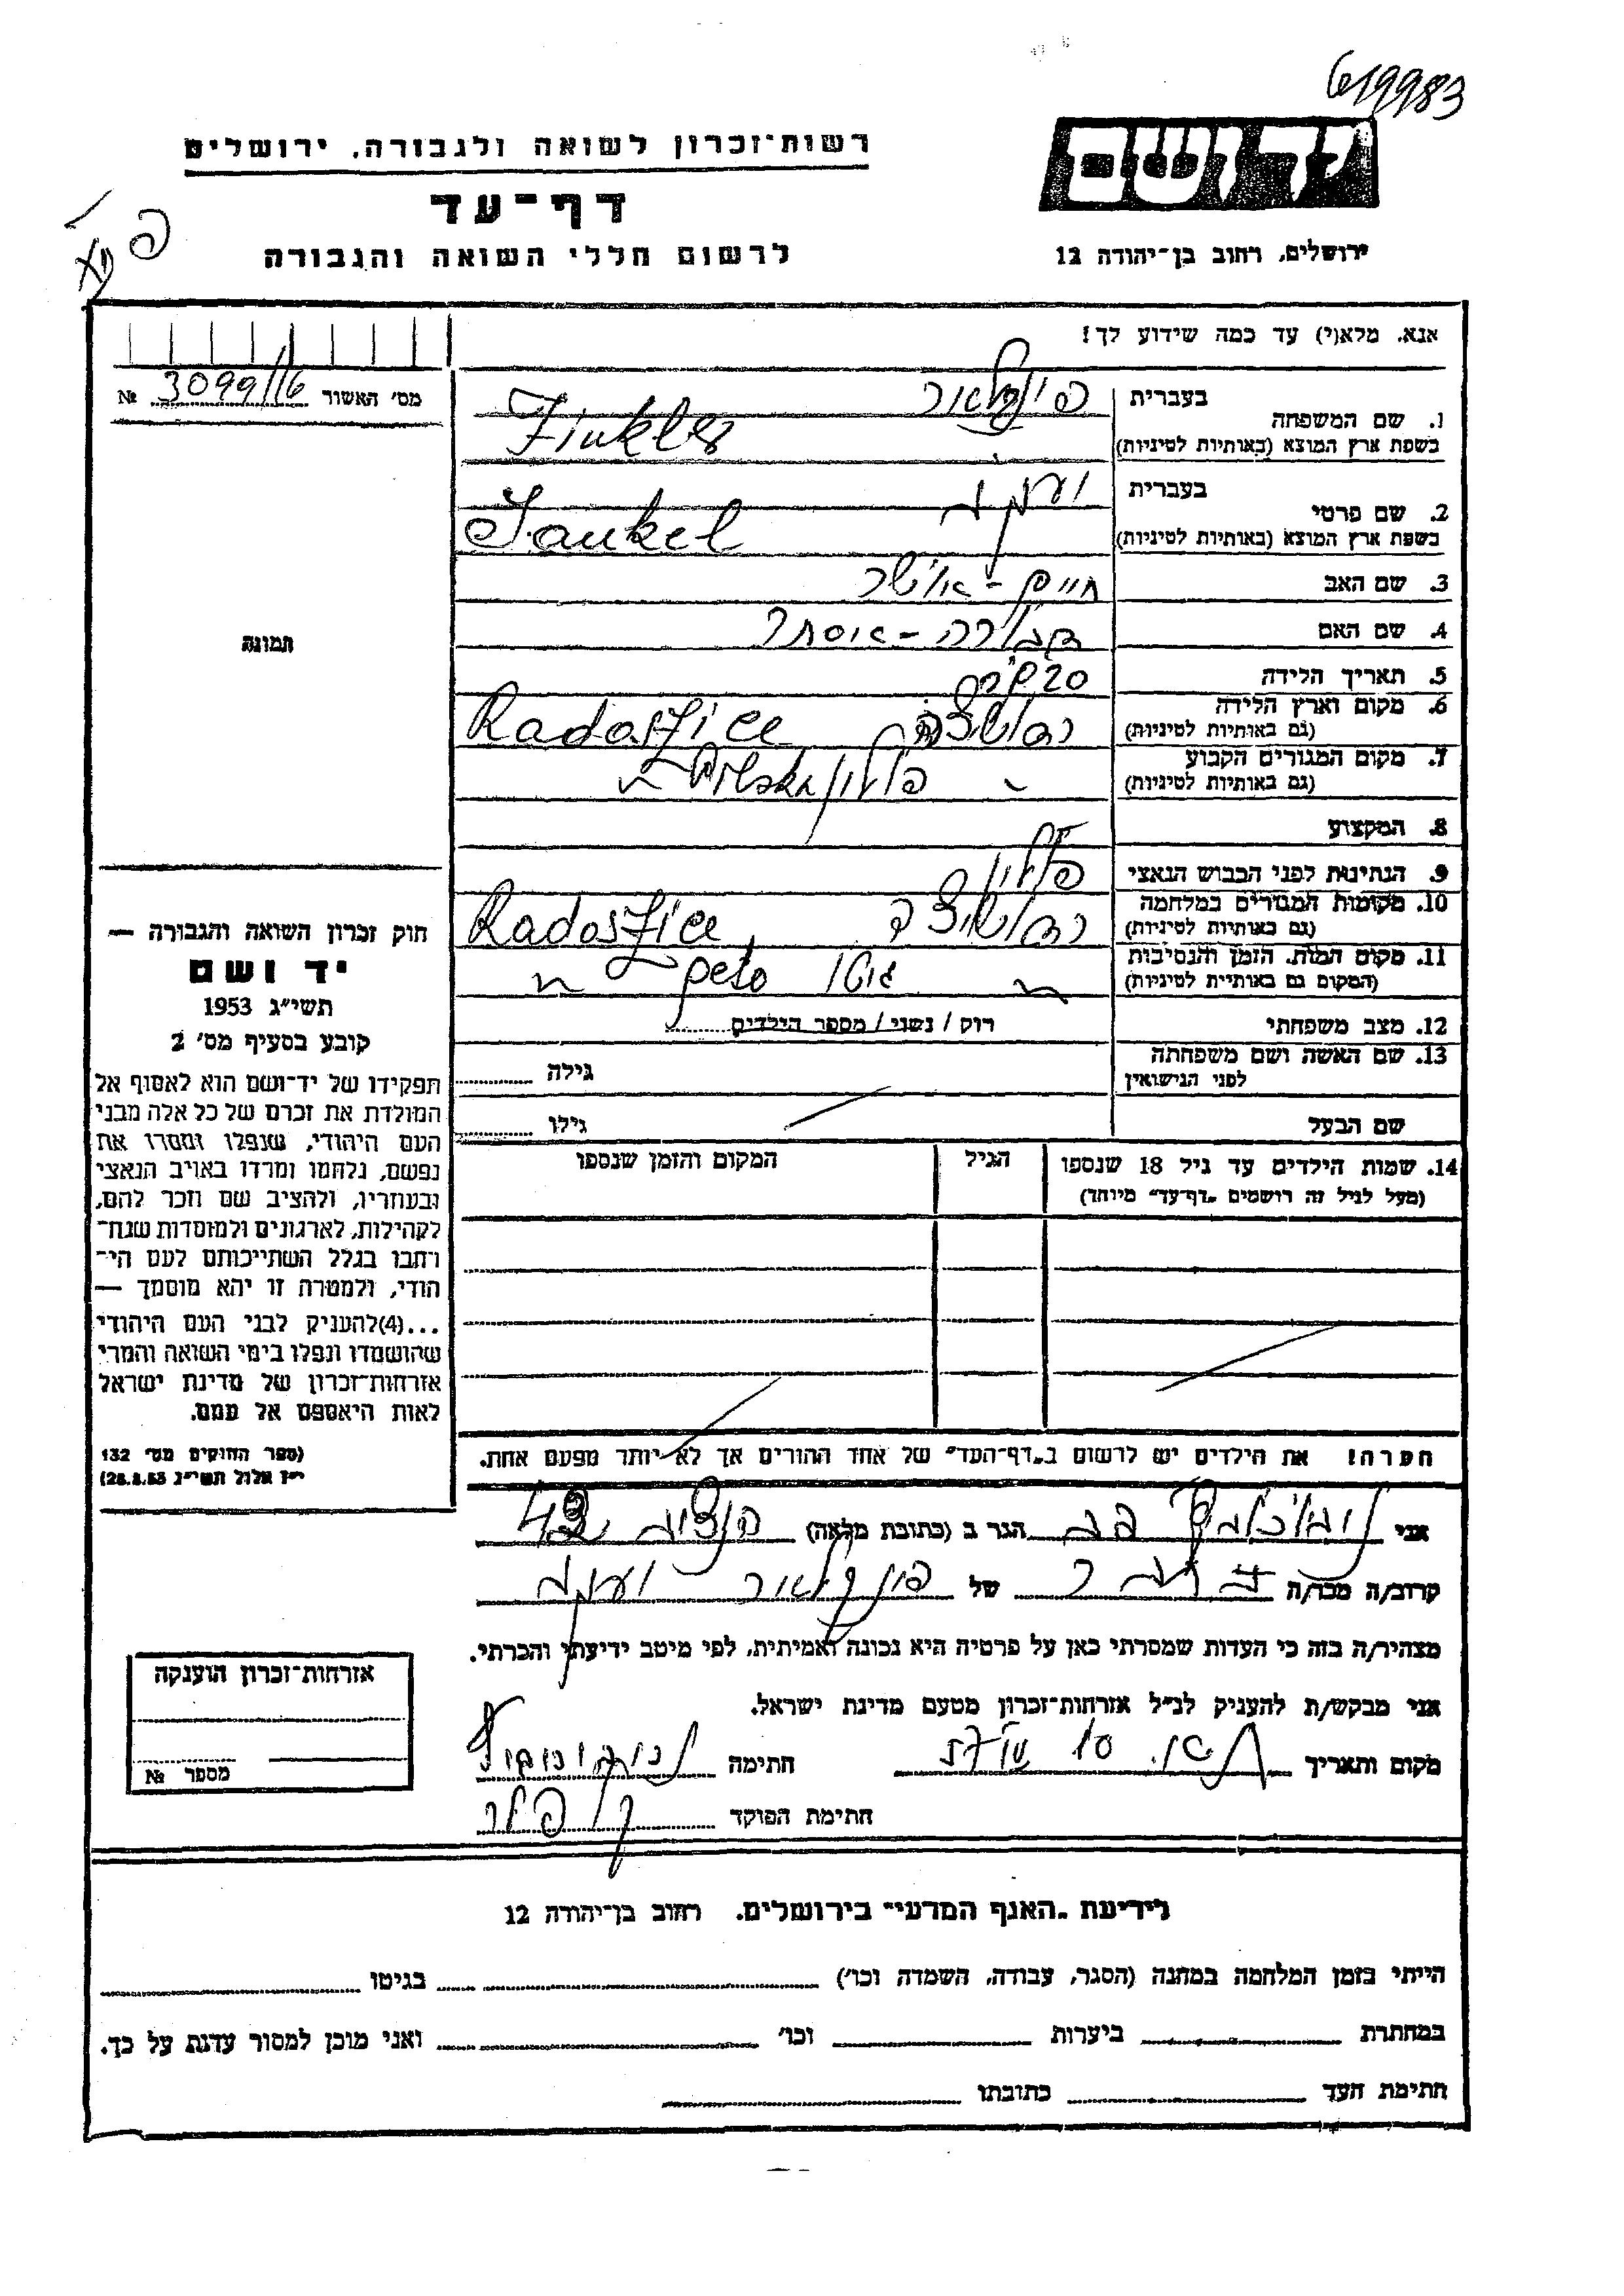 619983
רשות־זכרון לשואה ולגבורה, ירושלים
יד ושם
דף־עד
לרשום חללי השואה והגבורה
ירושלים, רחוב בן־יהודה 12
אנא, מלא(י) עד כמה שידוע לך!
מס׳ האשור 3099/16 №
בעברית
1. שם המשפחה
בשפת ארץ המוצא (באותיות לטיניות) Finkler
בעברית
2. שם פרטי
בשפת ארץ המוצא (באותיות לטיניות) Jankel
3. שם האב חיים -
4. שם האם דבורה - אסתר
5. תאריך הלידה
6. מקום וארץ הלידה Radoszice
(גם באותיות לטיניות)
7. מקום המגורים הקבוע פולין Polska
(גם באותיות לטיניות)
8. המקצוע
9. הנתינות לפני הכבוש הנאצי פולין
10. מקומות המגורים במלחמה Radoszice
(גם באותיות לטיניות)
11. מקום המות, הזמן והנסיבות גטו
(המקום גם באותיות לטיניות)
12. מצב משפחתי רוק / נשוי / מספר הילדים
13. שם האשה ושם משפחתה גילה
לפני הנישואין
שם הבעל גילו
14. שמות הילדים עד גיל 18 שנספו הגיל המקום והזמן שנספו
(מעל לגיל זה רושמים „דף־עד״ מיוחד)
הערה! את הילדים יש לרשום ב„דף־העד״ של אחד ההורים אך לא יותר מפעם אחת.
תמונה
חוק זכרון השואה והגבורה —
יד ושם
תשי״ג 1953
קובע בסעיף מס׳ 2
תפקידו של יד־ושם הוא לאסוף אל
המולדת את זכרם של כל אלה מבני
העם היהודי, שנפלו ומסרו את
נפשם, נלחמו ומרדו באויב הנאצי
ובעוזריו, ולהציב שם וזכר להם,
לקהילות, לארגונים ולמוסדות שנח־
רבו בגלל השתייכותם לעם הי־
הודי, ולמטרה זו יהא מוסמך —
...(4) להעניק לבני העם היהודי
שהושמדו ונפלו בימי השואה והמרי
אזרחות־זכרון של מדינת ישראל
לאות היאספם אל עמם.
(ספר החוקים מס׳ 132
י״ז אלול תשי״ג 28.8.53)
אני הגר ב (כתובת מלאה)
קרוב/ה מכר/ה של פינקלר יענקל
מצהיר/ה בזה כי העדות שמסרתי כאן על פרטיה היא נכונה ואמיתית, לפי מיטב ידיעתי והכרתי.
אני מבקש/ת להעניק לנ״ל אזרחות־זכרון מטעם מדינת ישראל.
מקום ותאריך חתימה
חתימת הפוקד
אזרחות־זכרון הוענקה
מספר №
לידיעת „האגף המדעי״ בירושלים, רחוב בן־יהודה 12
הייתי בזמן המלחמה במחנה (הסגר, עבודה, השמדה וכו׳) בגיטו
במחתרת ביערות וכו׳ ואני מוכן למסור עדות על כך.
חתימת העד כתובתו